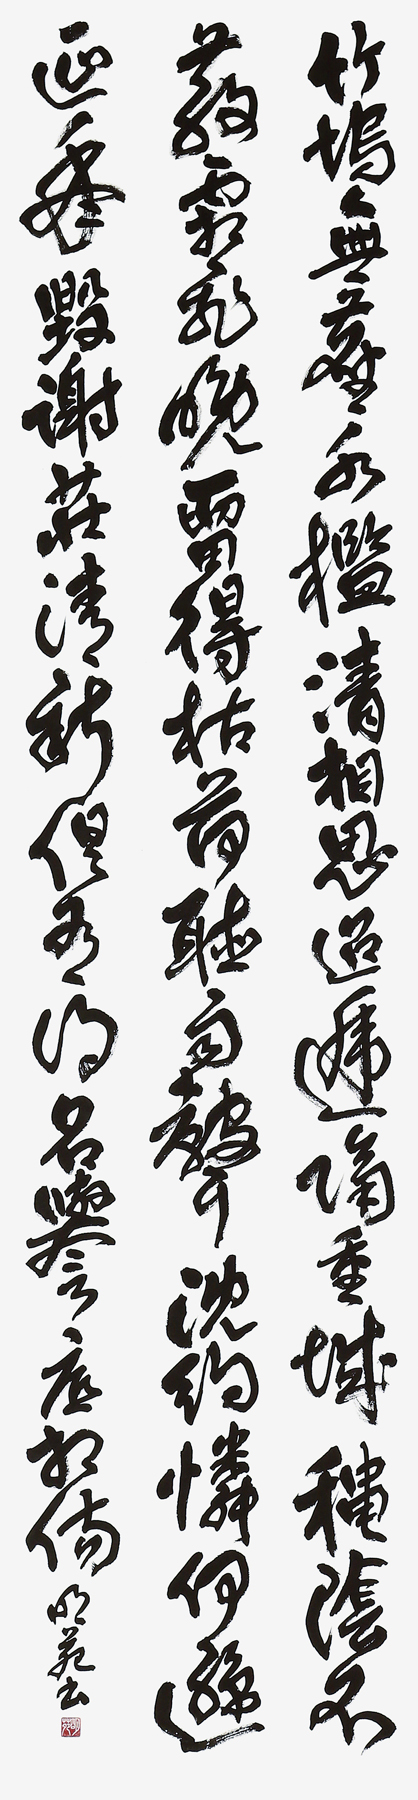 竹塢無塵水檻清相思迢遞隔重城穐陰不
散霜飛晚留得枯荷聽雨聲沈約憐何遜
延年毀謝莊清新俱有得名譽底相傷